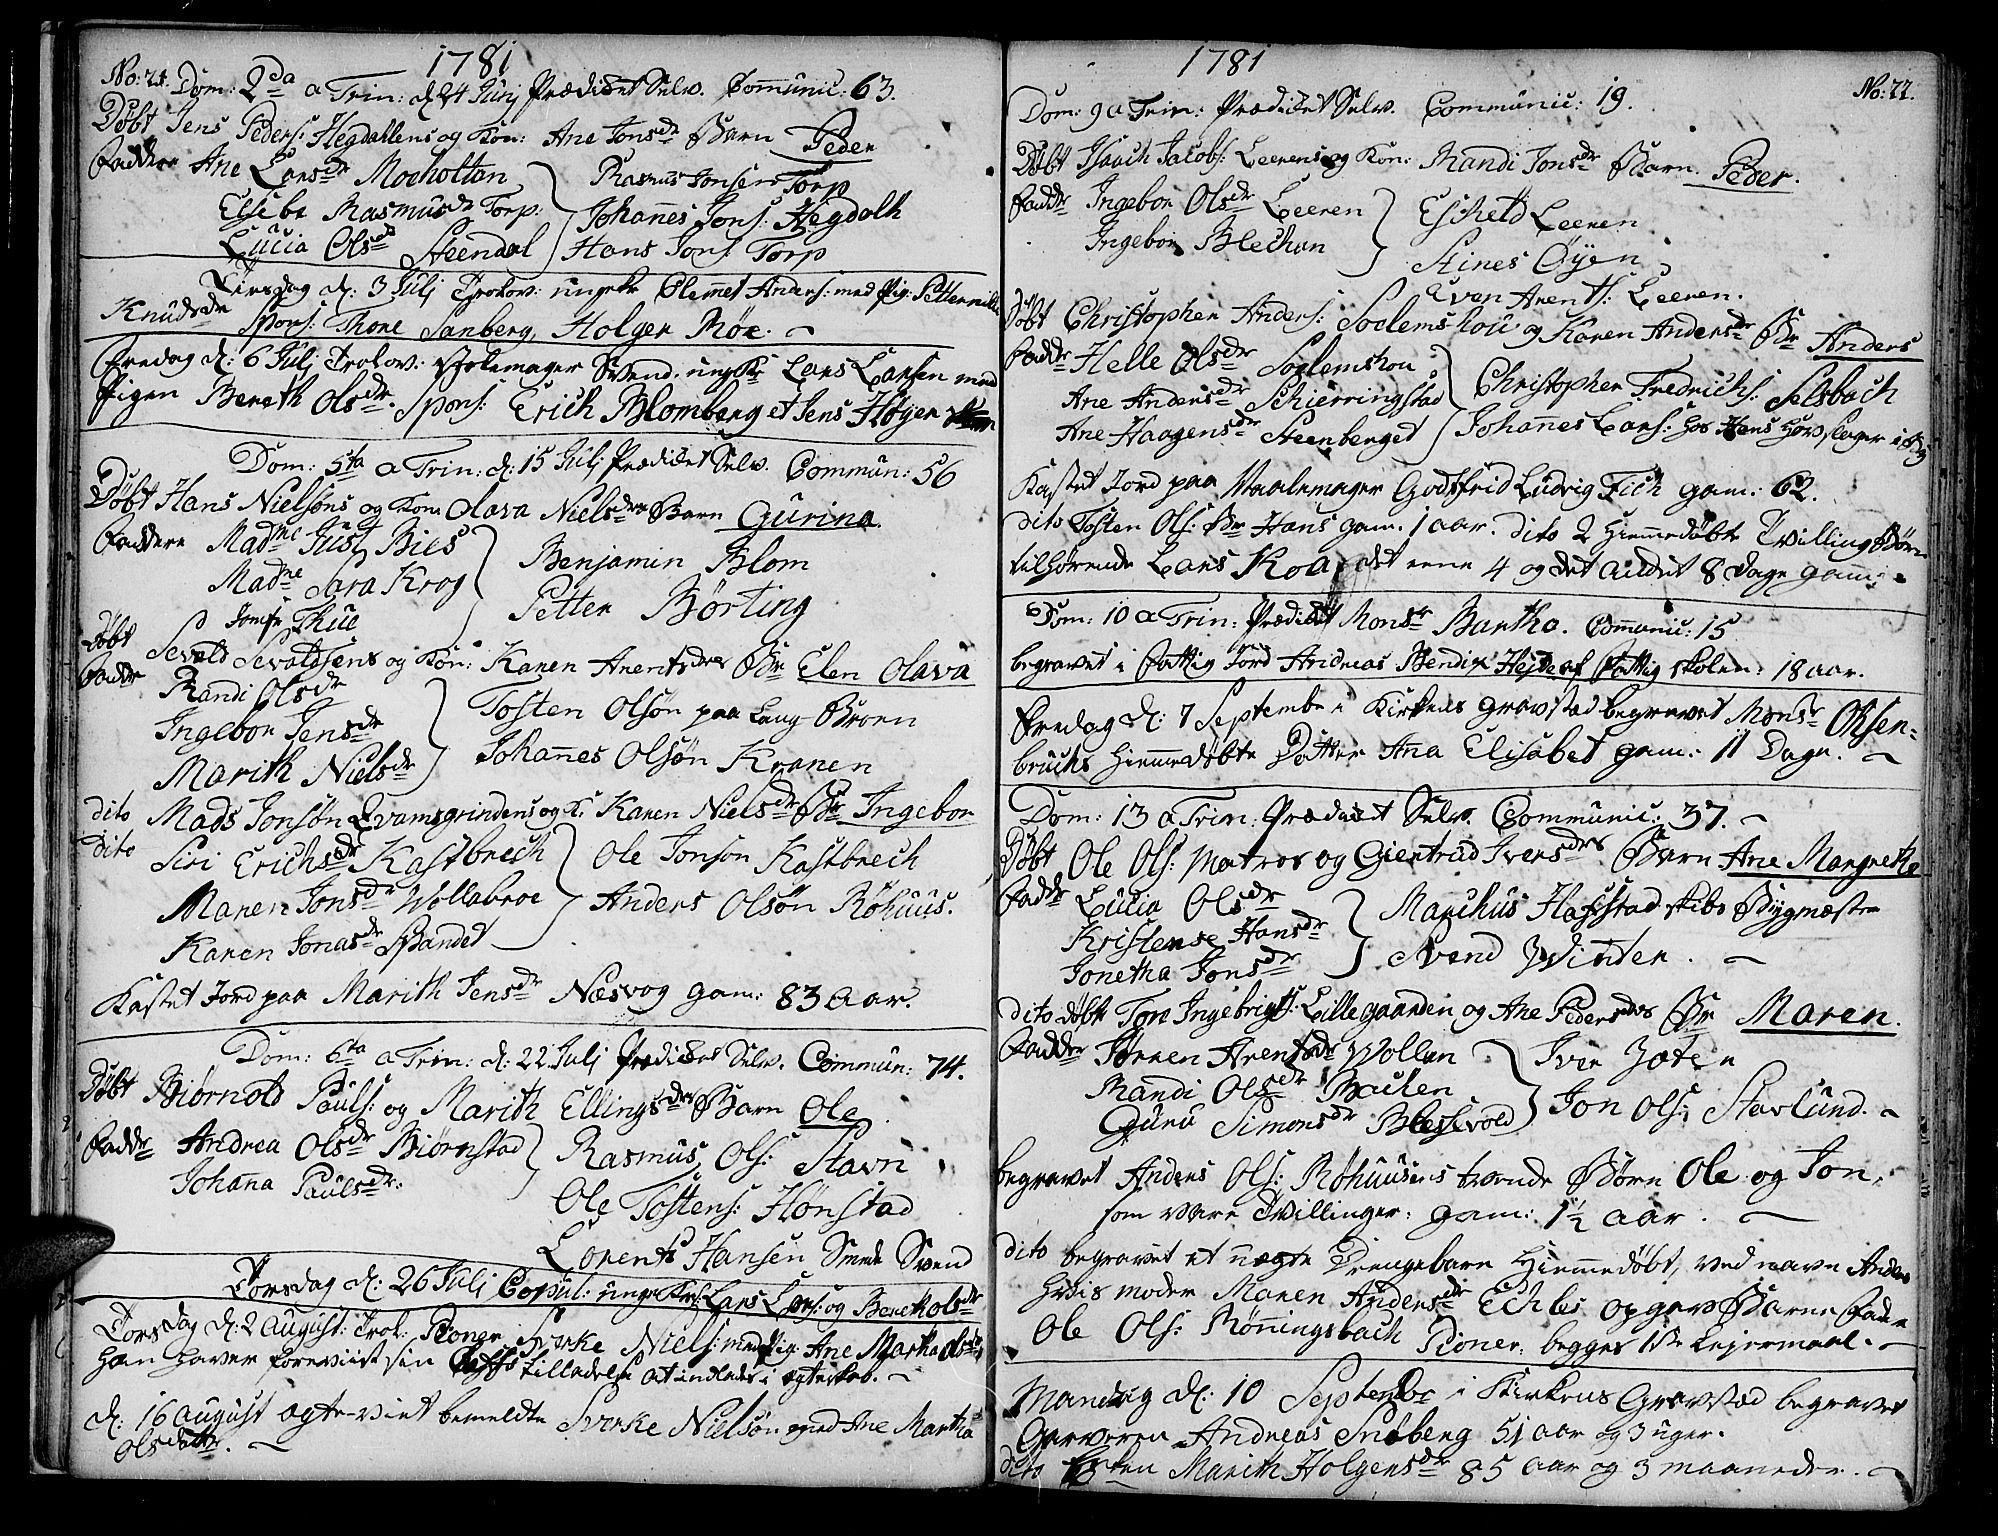 1781
No: 21. Dom: 2da a Trin: d. 24 Junj Prædiket Selv. Communic: 63.
Døbt Jens Peders: Hegdallens og Kon: Ane Jonsdr Barn Peder
Faddere Ane Larsdr Moeholtan Rasmus Jonsen Torp
Elsebe Rasmusdr Torp. Johannes Jons: Hegdalh
Lucia Olsdr Steendal Hans Jons: Torp
Tirsdag d: 3 Julj Trolov: ungekr Clemet Anders: med Pig: Petternille
Knudsdr Spons: Thore Sanberg, Holger Røe.
Fredag d: 6 Julj Trolov: Svend. ungkr Lars Larsen med
Pigen Bereth Olsdr. Spons: Erich Blomberg et Jens Høyer
Dom: 5ta a Trin: d: 15 Julj Prædiket Selv. Commun: 56
Døbt Hans Nielsøns og Kone Olava Nielsdrs Barn Gurina.
Faddere Madme Just Bies Benjamin Blom
Madme Sara Krog Petter Børting
Jomfr Thue
Døbt Sevald Sevaldsens og Kon: Karen Arentsdrs Br Elen Olava
Faddr Randi Olsdr Tosten Olsøn paa Lang-Broen
Ingebor Jensdr Johannes Olsøn Kranen
Marith Nielsdr
dito Mads Jonsøn Qvamsgrindens og K: Karen Nielsdr Br Ingebor
dito Siri Erichsdr Kastbrech Ole Jonson Kastbrech
Maren Jonsdr Wollabroe Anders Olsøn Røhuus.
Karen Jonasdr Bandet
Kastet Jord paa Marith Jensdr Næsvog gam: 83 Aar.
Dom: 6ta a Trin: d: 22 Julj Prædiket Selv. Commun: 74.
Døbt Biørnold Pauls: og Marith Ellingsdrs Barn Ole
Faddr Andrea Olsdr Biørnstad Rasmus Ols: Stavn
Johana Paulsdr: Ole Tostens: Hønstad
Lorents Hansen Smede Svend
Torsdag d: 26 Julj Copul: unge Lars Lars: og Bereth Olsdr
Torsdag d: 2 August: Trol: Pioner Sverke Niels: med Pig: Ane Martha Olsdr
Han haver foreviist sin tilladelse at indlade i egteskab.
d: 16 August egte-viet bemeldte Sverke Nielsøn med Ane Martha
Olsdatter.
1781
No: 22.
Dom: 9 a Trin: Prædiket Selv. Communic: 19.
Døbt Isach Jacobs: Leerens og Kon: Randi Jonsdr Barn. Peder.
Faddr Ingebor Olsdr Leeren Eschild Leeren
Ingebor Blechen Stines Øyen
Even Arents: Leeren.
Døbt Christopher Anders: Soelemshou og Karen Andersdr Br Anders
Faddr Helle Olsdr Soelemshou Christopher Fredrichs: Selsbach
Ane Andersdr Schierringstad Johannes Lars: hos Hans
Ane Haagensdr Steenberget
Kastet Jord paa Maalemager Godtfrid Ludvig Fich gam: 62.
dito Tosten Ols: Br Hans gam. 1 aar. dito 2 Hiemmedøbte Tvilling Børn
tilhørende Lars Roa, det eene 4 og det andet 8 dage gam:
Dom: 10 a Trin: Prædiket Monsr Bartho. Communic: 15
begravet i Fattig Jord Andreas Bendix Hejde af Fattig skolen: 18 aar.
Fredag d: 7 Septembr i Kirkens Gravstæd begravet Monsr Oxsen-
bruchs hiemmedøbte Datter Ana Elisabet gam: 11 Dage.
Dom: 13 a Trin: Prædiket Selv. Communic: 37.
Døbt Ole Ols: Matros og Giertrud Iversdrs Barn Ane Margrethe
Faddr Lucia Olsdr Marchus Hafstad skibs Bygmæster
Kristense Hansdr Svend Winter.
Jonetha Jonsdr
dito døbt Tore Ingebrigts: Lillegaarden og Ane Pedersdrs Br Maren.
Faddr Jørnen Arentsdr Wollen Iver Joten
Randi Olsdr Baclen Jon Ols: Stavlund.
Guru Simonsdr Blesevold
begravet Anders Ols: Røhuusens trende Børn Ole og Jon,
som vare Tvillinger: gam: 1½ aar.
dito begravet et uægte Drengebarn hiemmedøbt, ved navn Anders
hvis moder Maren Andersdr Echles opgav Barne Fader
Ole Ols: Rønningsbach Pioner: begges 1ste Lejermaal.
Mandag d: 10 Septembr i Kirkens Gravstæd begravet
Garveren Andreas Snøberg 51 aar og 3 uger.
dito Enken Marith Holgersdr 85 aar og 3 maaneder.